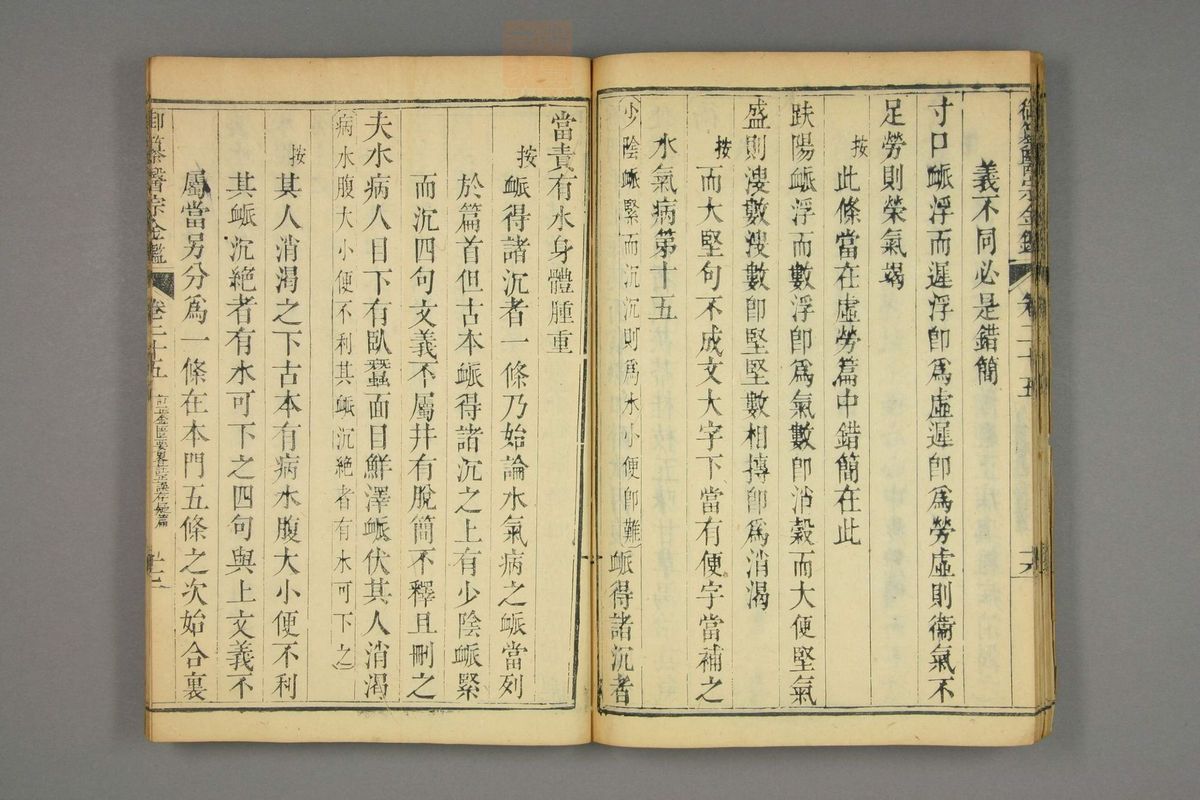 御纂醫宗金鑑 卷二十五
義不同必是錯簡
寸口脈浮而遲浮卽爲虛遲卽爲勞虛則衞氣不
足勞則榮氣竭
按此條當在虛勞篇中錯簡在此
趺陽脈浮而數浮卽爲氣數卽消穀而大便堅氣
盛則溲數溲數卽堅堅數相摶卽爲消渴
按而大堅句不成文大字下當有便字當補之
水氣病第十五
少陰脈緊而沉沉則爲水小便卽難脈得諸沉者
當責有水身體腫重
按脈得諸沉者一條乃始論水氣病之脈當列
於篇首但古本脈得諸沉之上有少陰脈緊
而沉四句文義不屬井有脫簡不釋且刪之
夫水病人目下有臥蠶面目鮮澤脈伏其人消渴
病水腹大小便不利其脈沉絕者有水可下之
按其人消渴之下古本有病水腹大小便不利
其脈沉絕者有水可下之四句與上文義不
屬當另分爲一條在本門五條之次始合裏
御纂醫宗金鑑 卷二十五 訂正金匱要畧註正誤存疑篇